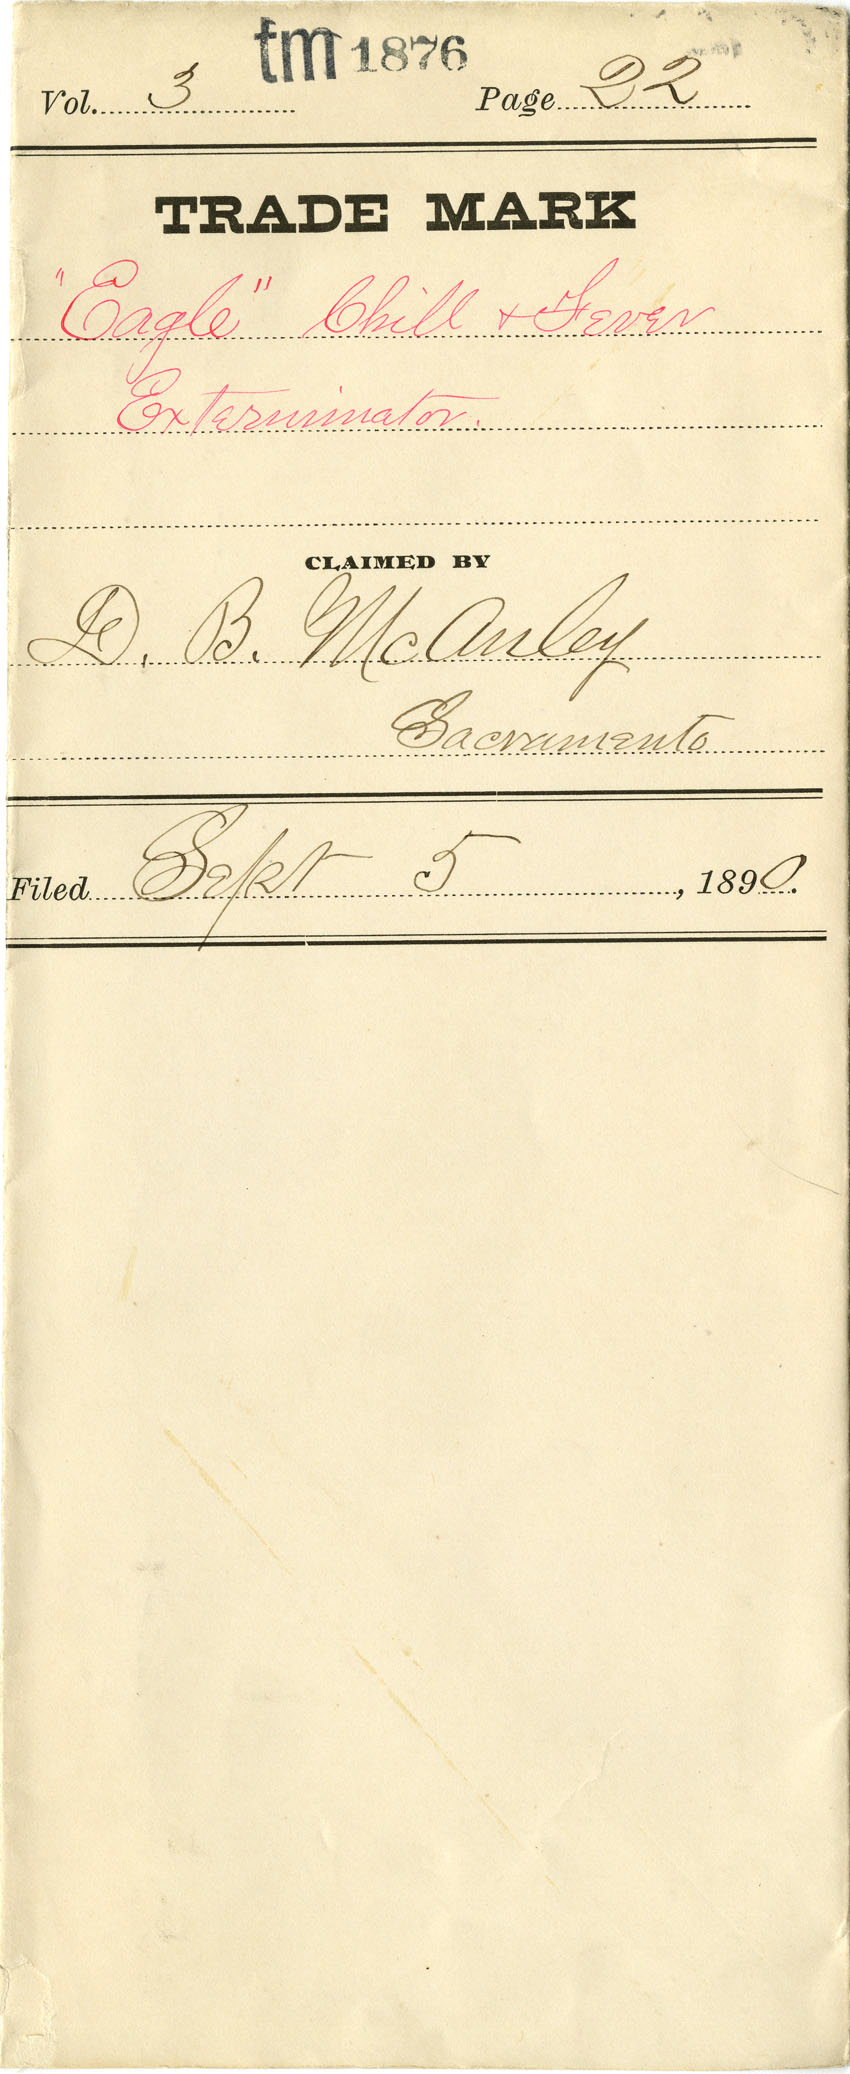 tm 1876
Vol. 3 Page 22
TRADE MARK
"Eagle" Chill & Fever
Exterminator.
CLAIMED BY
D. B. McAuley
Sacramento
Filed Sept 5, 1890.